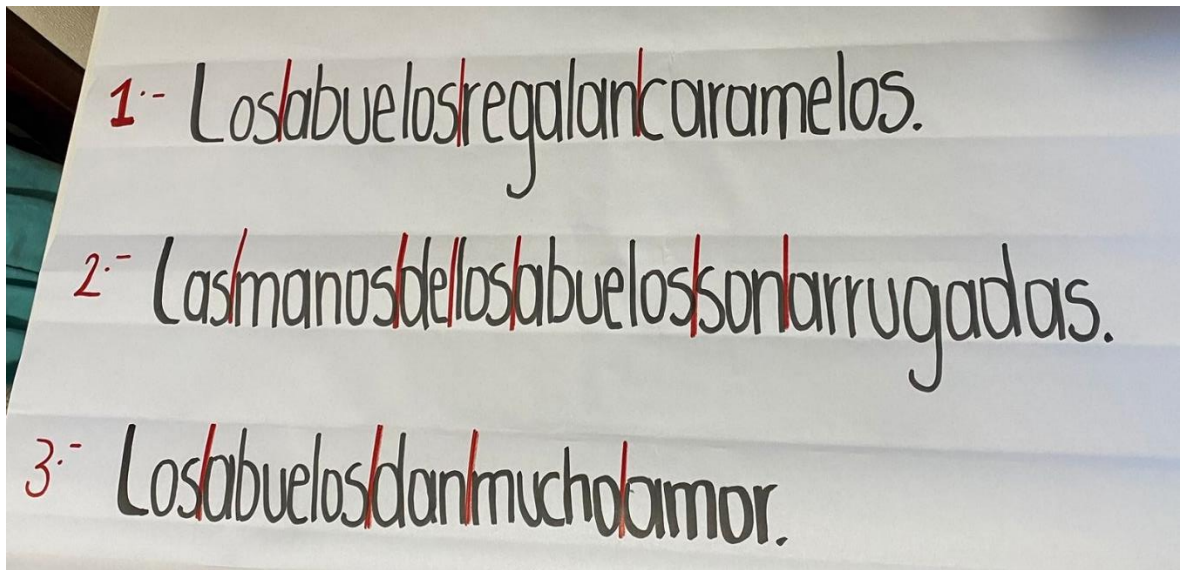 1.- Los/abuelos/regalan/caramelos.
2.- Las/manos/de/los/abuelos/son/arrugadas.
3.- Los/abuelos/dan/mucho/amor.